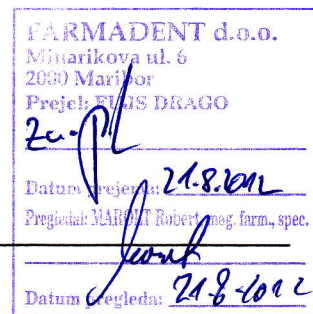 FARMADENT d.o.o.
Minarikova ul. 6
2000 Maribor
Prejel: FUJS DRAGO
Datum prejema: 21.8.2012
Pregledal: MAROLT Robert, mag. farm., spec.
Datum pregleda: 21.8.2012